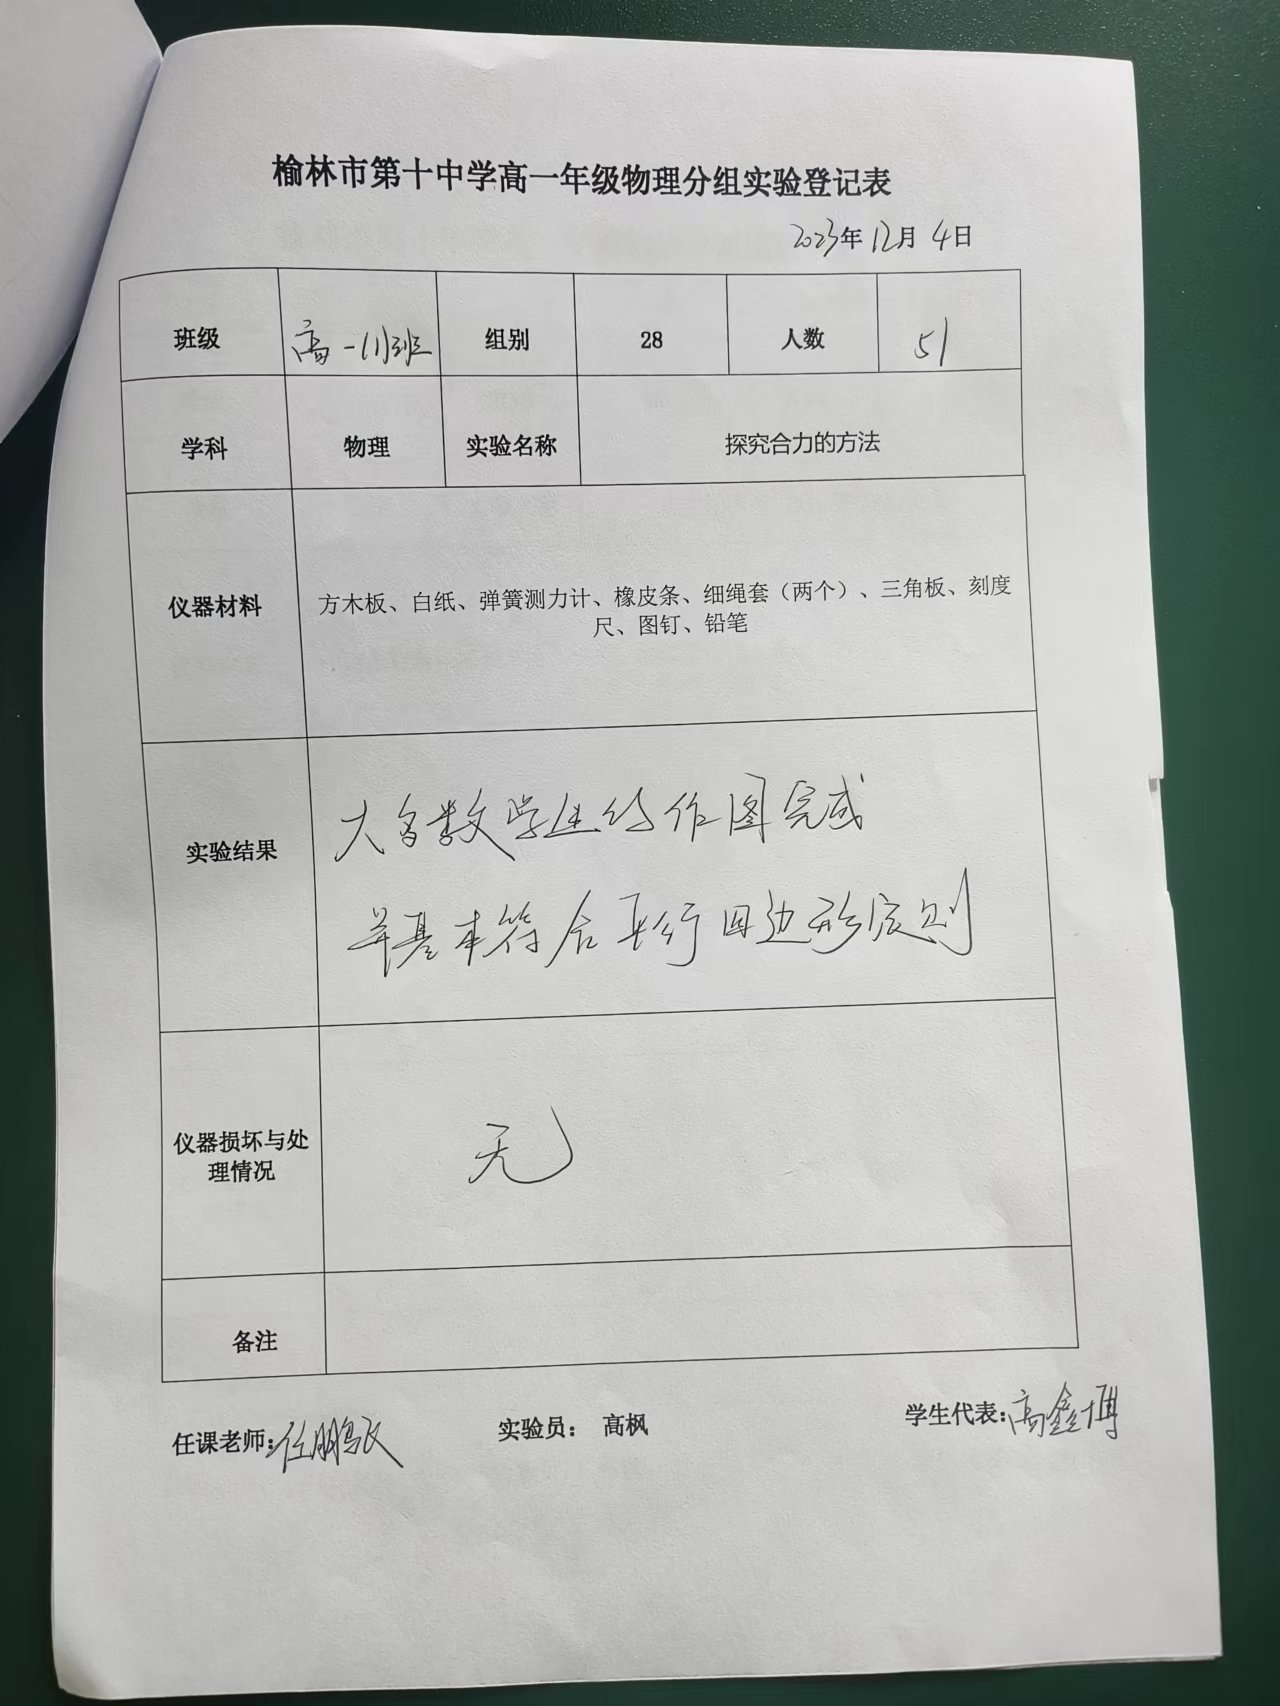 榆林市第十中学高一年级物理分组实验登记表
2023年12月4日
班级 高一11班 组别 28 人数 51
学科 物理 实验名称 探究合力的方法
仪器材料 方木板、白纸、弹簧测力计、橡皮条、细绳套（两个）、三角板、刻度
尺、图钉、铅笔
实验结果
大多数学生能作图完成
并基本符合平行四边形定则
仪器损坏与处
理情况
无
备注
任课老师：任鹏 实验员： 高枫 学生代表：高鑫博